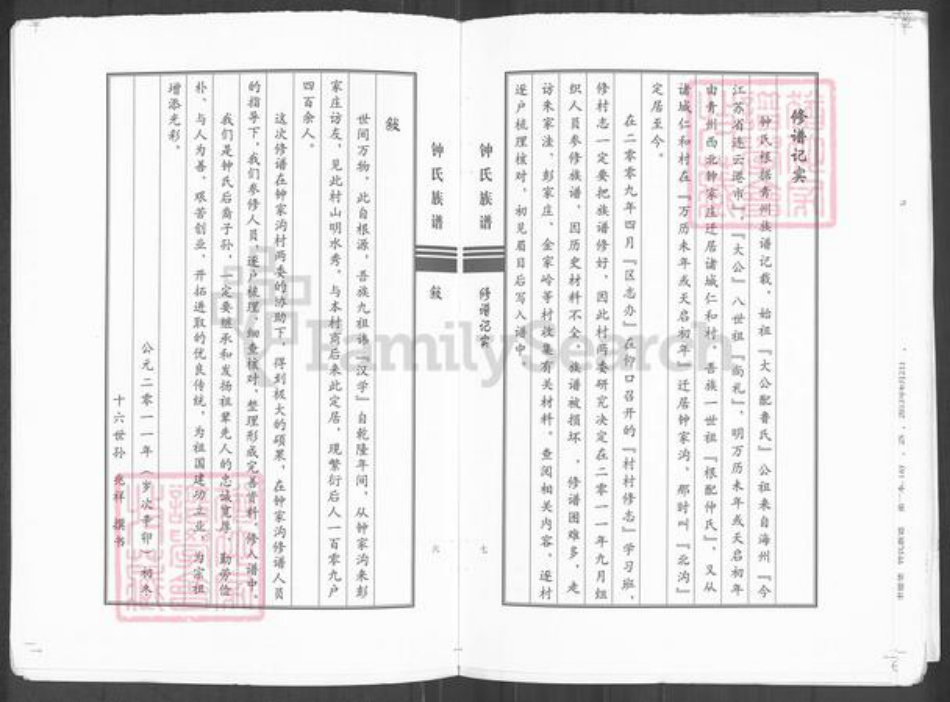 修谱记实
钟氏根据青州族谱记载，始祖『大公配鲁氏』公祖来自海州『今
江苏省连云港市』，『大公』八世祖『尚礼』，明万历末年或天启初年
由青州西北钟家庄迁居诸城仁和村。吾族一世祖『根配仲氏』，又从
诸城仁和村在『万历末年或天启初年』迁居钟家沟，那时叫『北沟』
定居至今。
在二零零九年四月『区志办』在柳口召开的『村村修志』学习班，
修村志一定要把族谱修好，因此村两委研究决定在二零一一年九月组
织人员参修族谱，因历史材料不全，族谱被损坏，修谱困难多，走
访朱家洼、彭家庄、金家岭等村收集有关材料。查阅相关内容，逐村
逐户梳理核对，初见眉目后写入谱中。
钟氏族谱
修谱记实
七
钟氏族谱
叙
六
叙
世间万物，此自根源，吾族九祖讳『汉学』自乾隆年间，从钟家沟来彭
家庄访友，见此村山明水秀，与本村商后来此定居，现繁衍后人一百零九户
四百余人。
这次修谱在钟家沟村两委的协助下，得到极大的硕果，在钟家沟修谱人员
的指导下，我们参修人员，逐户梳理，细查核对，整理形成完善资料，修入谱中。
我们是钟氏后裔子孙，一定要继承和发扬祖辈先人的忠诚宽厚、勤劳俭
朴、与人为善、艰苦创业、开拓进取的优良传统，为祖国建功立业，为宗祖
增添光彩。
公元二零一一年（岁次辛卯）初冬
十六世孙 兆祥 撰书
FamilySearch